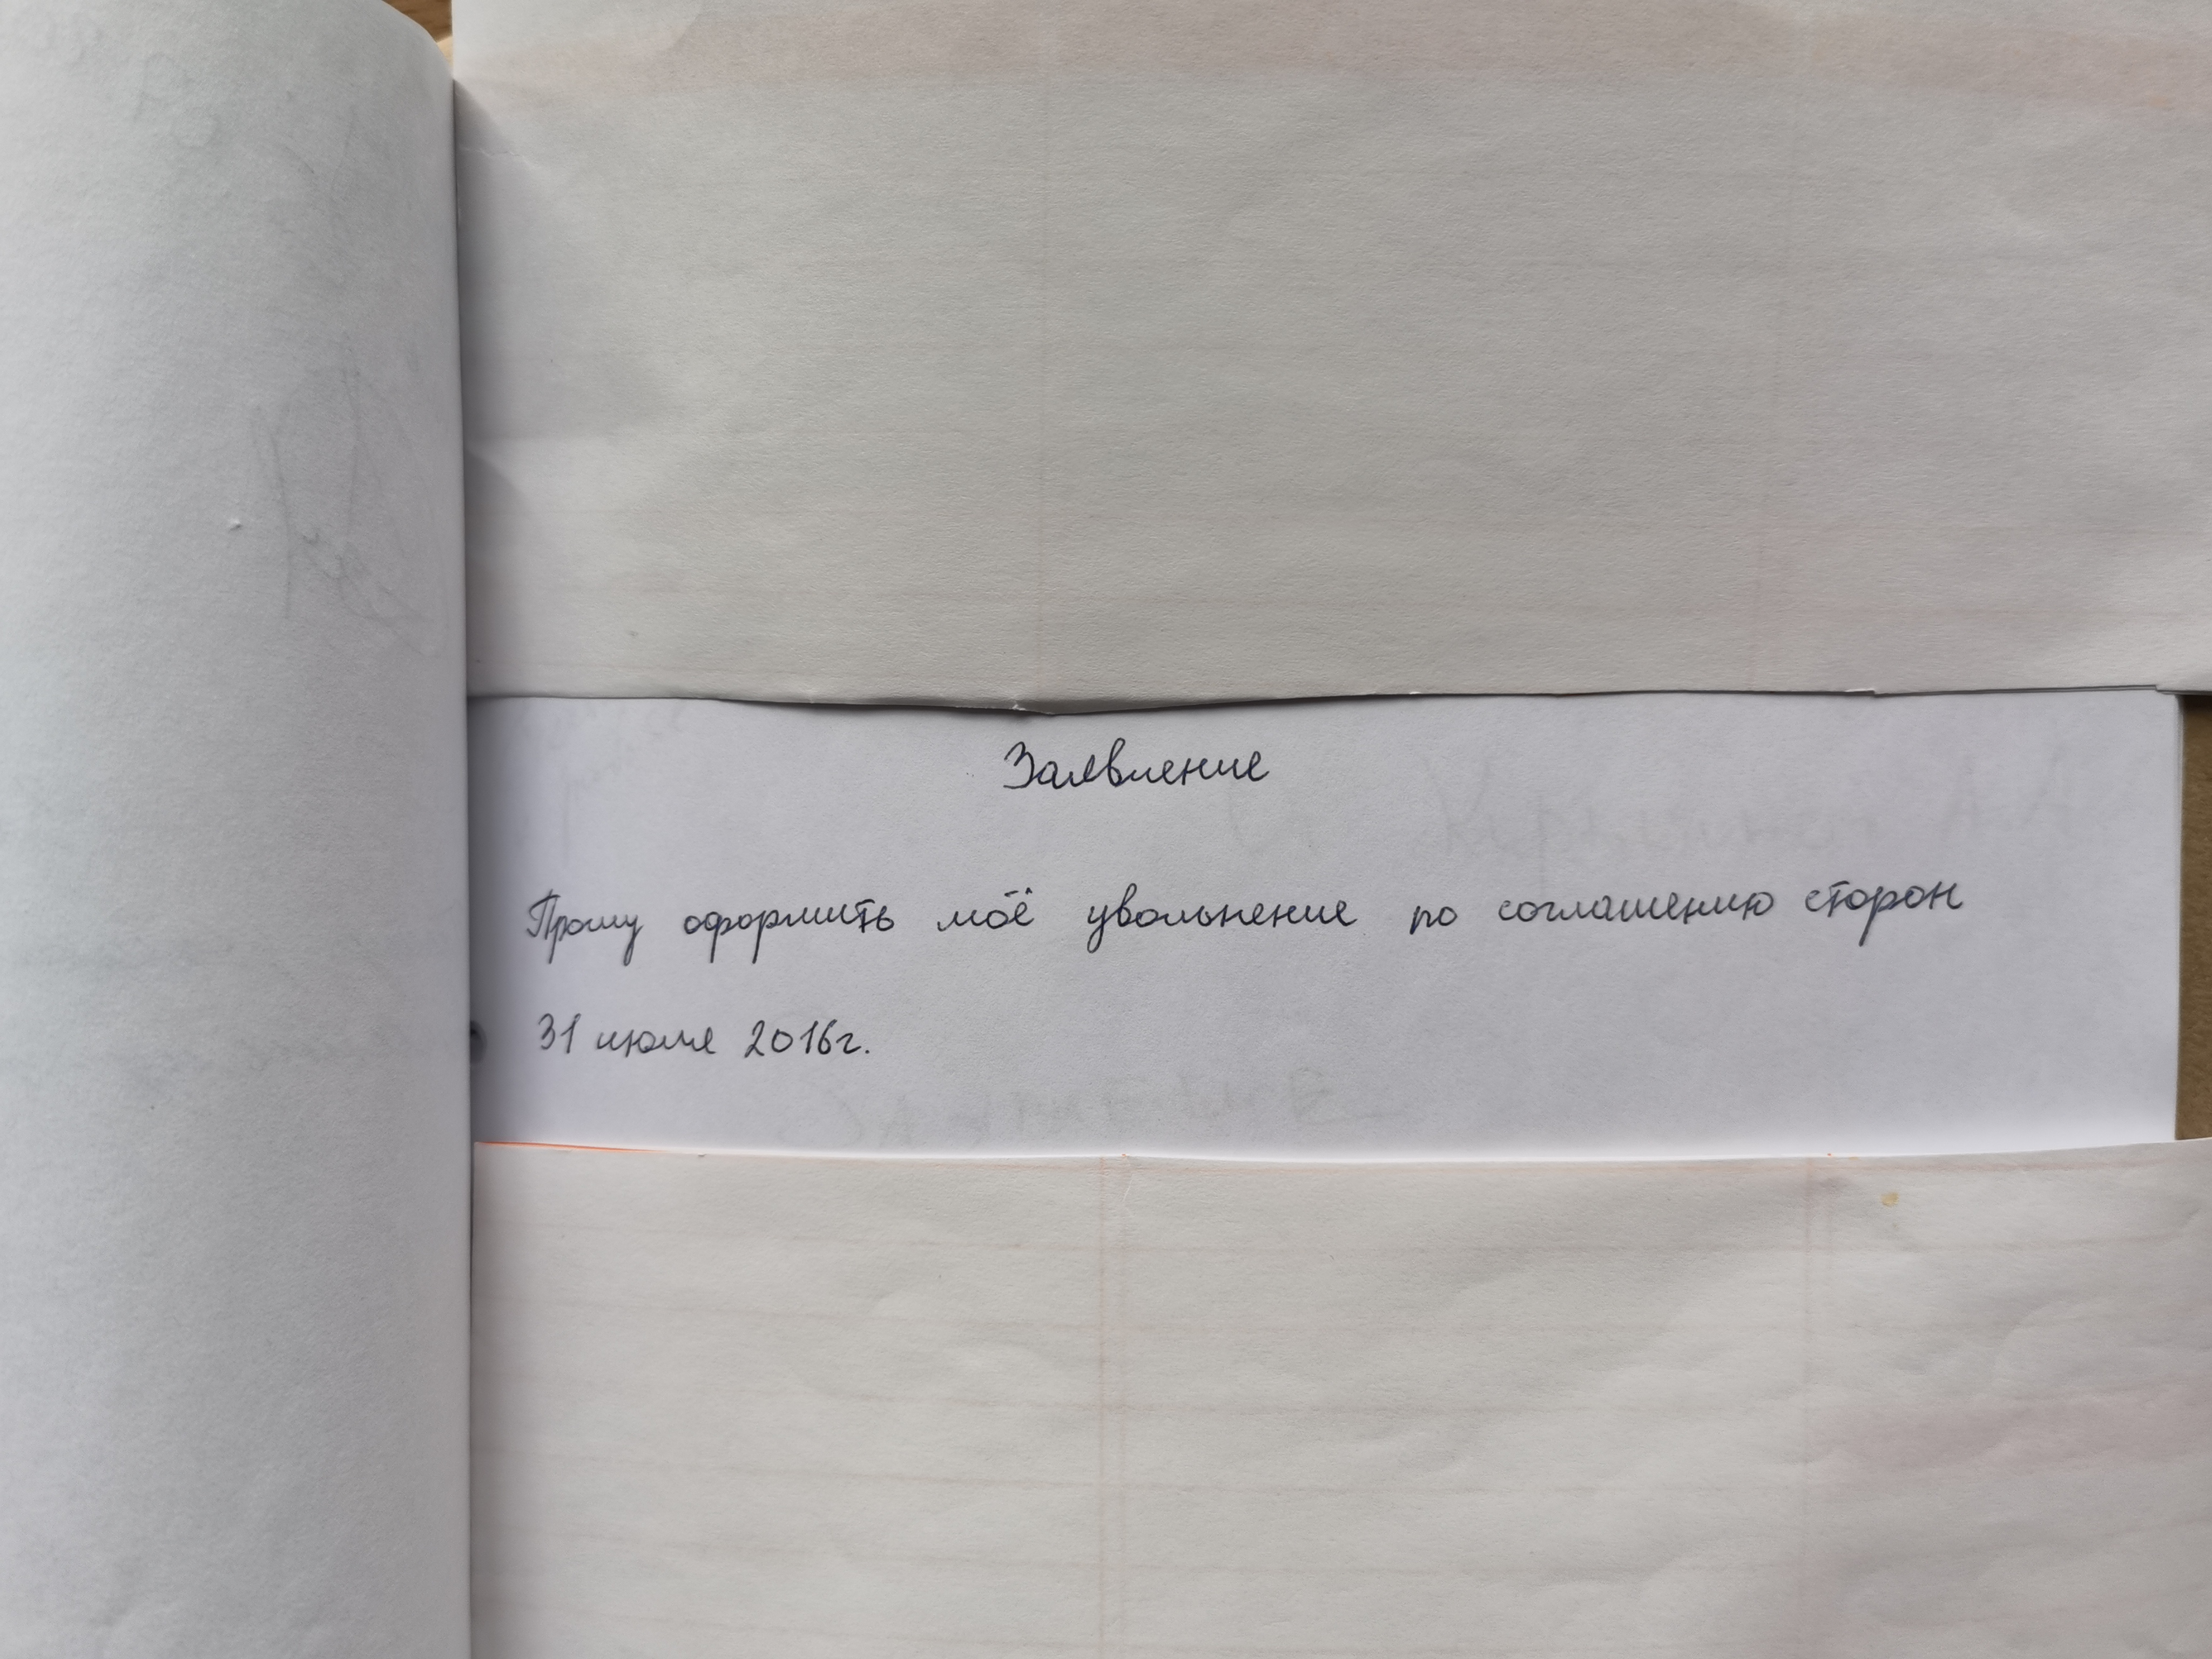 Заявление
Прошу оформить моё увольнение по соглашению сторон
31 июля 2016г.